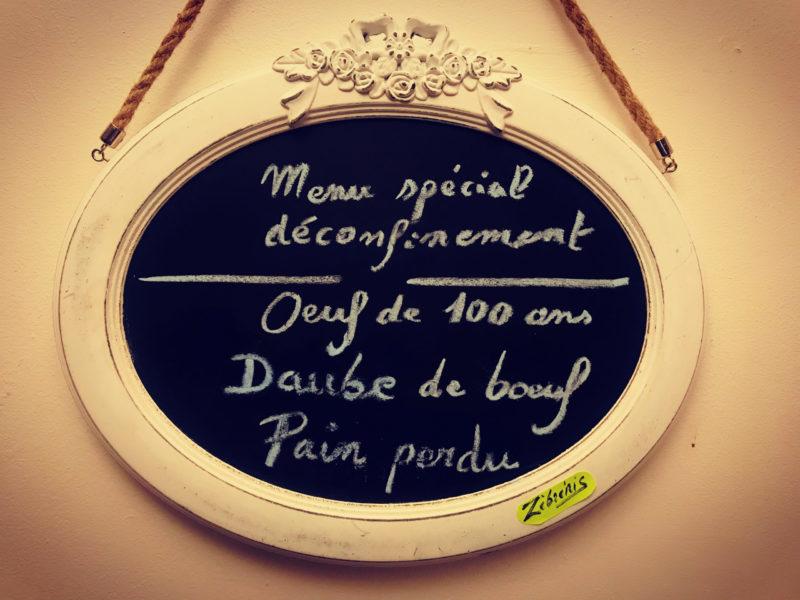 Menu spécial
déconfinement
Oeuf de 100 ans
Daube de boeuf
Pain perdu